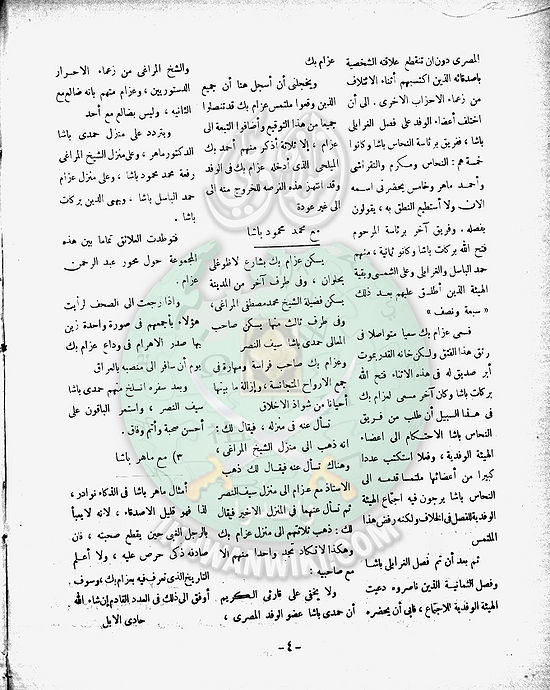 المصرى دون ان تنقطع علاقته الشخصية
باصدقائه الذين اكتسبهم أثناء الائتلاف
من زعماء الاحزاب الاخرى. الى أن
اختلف أعضاء الوفد على فصل الغرابلى
باشا، ففريق برئاسة النحاس باشا وكانوا
خمسة هم: النحاس ومكرم والنقراشى
وأحمد ماهر وخامس يحضرنى اسمه
الان ولا أستطيع النطق به، يقولون
بفصله. وفريق آخر برئاسة المرحوم
فتح الله بركات باشا وكانو ثمانية، منهم
حمد الباسل والغرابلى وعلى الشمسى وبقية
الهيئة الذين أطلق عليهم بعد ذلك
« سبعة ونصف »
فسعى عزام بك سعيا متواصلا فى
رتق هذا الفتق ولكن خانه القدر بموت
أبر صديق له فى هذه الاثناء فتح الله
بركات باشا وكان آخر مسعى لعزام بك
فى هذا السبيل أن طلب من فريق
النحاس باشا الاحتكام الى اعضاء
الهيئة الوفدية، وفعلا استكتب عددا
كبيرا من أعضائها ملتمسا قدمه الى
النحاس باشا يرجون فيه اجتماع الهيئة
الوفدية للفصل فى الخلاف ولكنه رفض هذا
الملتمس
ثم بعد أن تم فصل الغرابلى باشا
وفصل الثمانية الذين ناصروه دعيت
الهيئة الوفدية للاجتماع، فابى أن يحضره
عزام بك
ويخجلنى أن أسجل هنا أن جميع
الذين وقعوا ملتمس عزام بك قد تنصلوا
جميعا من هذا التوقيع وأضافوا التبعة الى
عزام، إلا ثلاثة أذكر منهم أحمد بك
المليجى الذى أدخله عزام بك فى الوفد
وقد انتهز هذه الفرصة للخروج منه الى
الى غير عودة
مع محمد محمود باشا
يسكن عزام بك بشارع لاظوغلى
بحلوان، وفى طرف آخر من المدينة
يسكن فضيلة الشيخ محمد مصطفى المراغى،
وفى طرف ثالث منها يسكن صاحب
المعالى حمدى باشا سيف النصر
وعزام بك صاحب فراسة ومهارة فى
جمع الارواح المتجانسة، وإزالة ما بينها
أحيانا من شواذ الاخلاق
تسأل عنه فى منزله، فيقال لك:
انه ذهب الى منزل الشيخ المراغى،
وهناك تسأل عنه فيقال لك ذهب
الاستاذ مع عزام الى منزل سيف النصر
ثم تسأل عنهما فى المنزل الاخير فيقال
لك: ذهب ثلاثتهم الى منزل عزام بك
وهكذا لا تكاد تجد واحدا منهم الا
مع صاحبيه:
ولا يخفى على قارئى الكريم
أن حمدى باشا عضو الوفد المصرى،
والشيخ المراغى من زعماء الاحرار
الدستوريين، وعزام متهم بانه ضالع مع
الثانيه، وليس بضالع مع أحد
ويتردد على منزل حمدى باشا
الدكتور ماهر، وعلى منزل الشيخ المراغى
رفعة محمد محمود باشا، وعلى منزل عزام
حمد الباسل باشا، وبهى الدين بركات
باشا.
فتوطدت العلائق تماما بين هذه
المجموعة حول محور عبد الرحمن
عزام.
واذا رجعت الى الصحف لرأيت
هؤلاء بأجمعهم فى صورة واحدة زين
بها صدر الاهرام فى وداع عزام بك
يوم أن سافر الى منصبه بالعراق
وبعد سفره انسلخ منهم حمدى باشا
سيف النصر، واستمر الباقون على
أحسن صحبة وأتم وفاق.
٣) مع ماهر باشا
أمثال ماهر باشا فى الذكاء نوادر،
لذا فهو قليل الاصدقاء، لانه لا يعبأ
بالرجل التقى حين يقطع صحبته، فان
صادفه ذكى حرص عليه، ولا أعلم
التاريخ الذى تعرف فيه بعزام بك، وسوف
أوفق الى ذلك فى العدد القادم إن شاء الله.
حادى الابل
- ٤ -